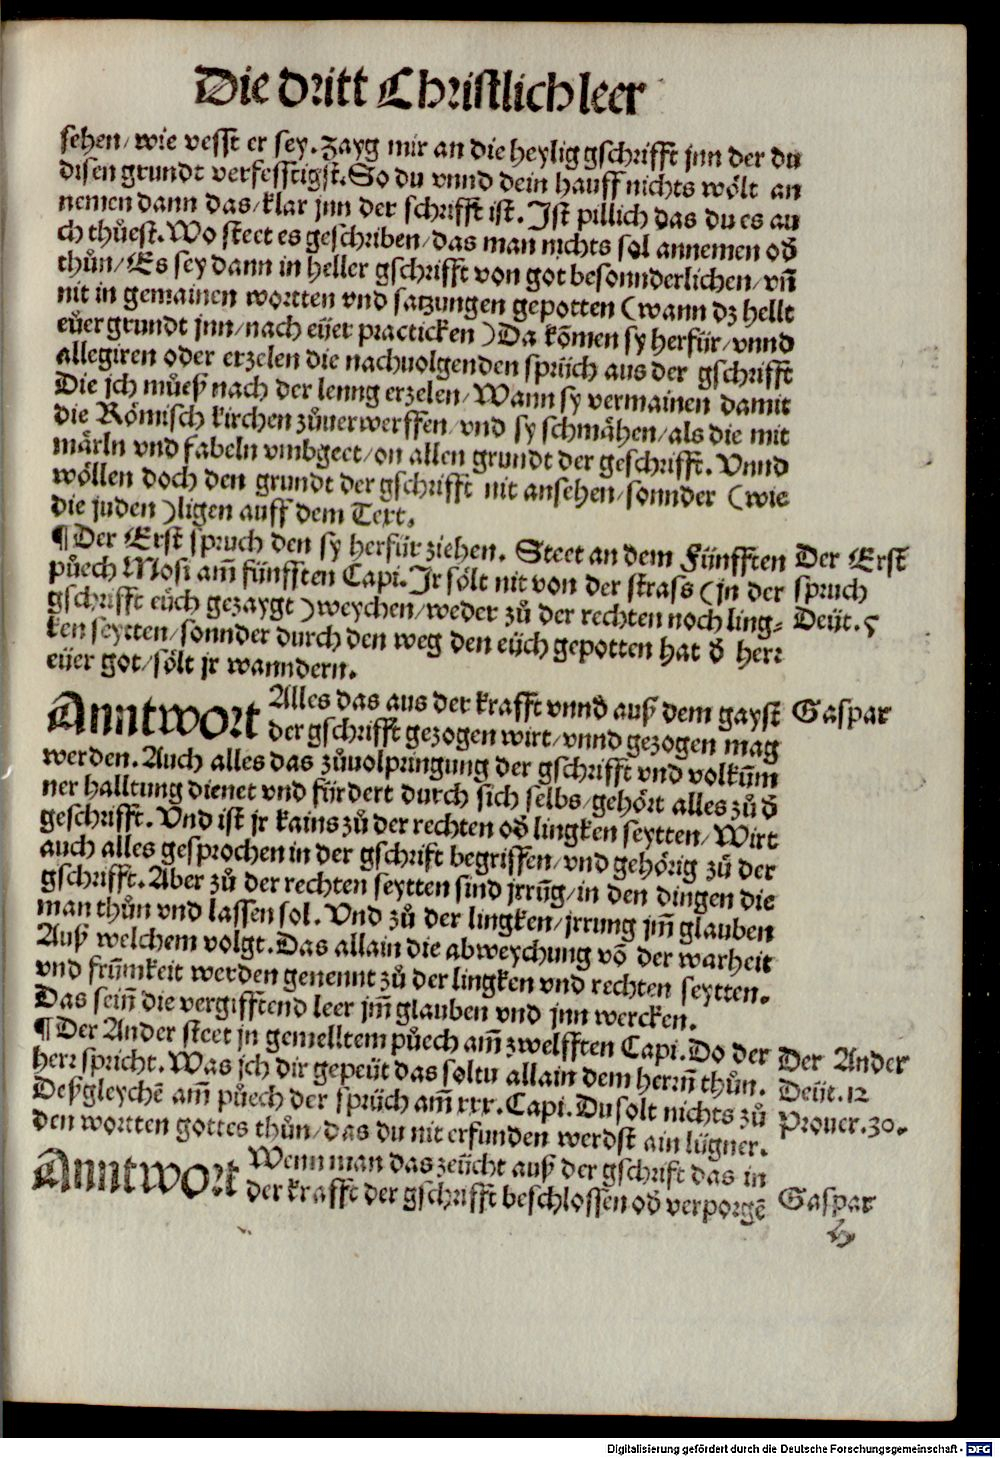 Die dritt Christlich leer
sehen/ wie vesst er sey. Zayg mir an die heylig gschrifft jnn der du
disen grundt verfesstigst. So du vnnd dein hauff nichts wölt an
nemen dann das/ klar jnn der schrifft ist. Jst pillich das du es au
ch thuͤest. Wo steet es geschriben/ das man nichts sol annemen oð
thůn/ Es sey dann in heller gschrifft von got besonnderlichen/ vñ
nit in gemainen wortten vnd satzungen gepotten (wann dz hellt
eüer grundt jnn/ nach eüer practicken) Da kõmen sy herfür/ vnnd
allegiren oder erzelen die nachuolgenden sprüch aus der gschrifft
Die jch muͤeß nach der lenng erzelen/ Wann sy vermainen damit
die Römisch kirchen zůuerwerffen/ vnd sy schmähen/ als die mit
märln vnd fabeln vmbgeet/ on allen grundt der geschrifft. Vnnd
wöllen doch den grundt der gschrifft nit ansehen/ sonnder (wie
die juden) ligen auff dem Text.
¶ Der Erst spruch den sy herfür ziehen. Steet an dem Fünfften
Der Erst
puͤech Mosi am̃ fünfften Capi. Jr sölt nit von der strass (jn der
spruch
gschrifft eüch gezaygt) weychen/ weder zů der rechten noch ling⸗
Deüt. 5
ken seytten/ sonnder durch den weg den eüch gepotten hat ð herr
eüer got/ sölt jr wanndern.
Anntwort Alles das aus der krafft vnnd auß dem gayst
Gaspar
der gschrifft gezogen wirt/ vnnd gezogen mag
werden. Auch alles das zůuolpringung der gschrifft vnd volkũm
ner halltung dienet vnd fürdert durch sich selbs/ gehört alles zů ð
geschrifft. Vnd ist jr kains zů der rechten oð lingken seytten/ Wirt
auch alles gesprochen in der gschrift begriffen/ vnd gehörig zů der
gschrifft. Aber zů der rechten seytten sind jrrũg/ in den dingen die
man thůn vnd lassen sol. Vnd zů der lingken/ jrrung jm̃ glauben
Auß welchem volgt. Das allain die abweychung võ der warheit
vnd frũmkeit werden genennt zů der lingken vnd rechten seytten.
Das sein̄ die vergifftend leer jm̃ glauben vnd jnn wercken.
¶ Der Ander steet jn gemelltem puͤech am̃ zwelfften Capi. Do der
Der Ander
herr spricht. Was jch dir gepeüt das soltu allain dem herrñ thůn.
Deüt. 12
Deßgleychẽ am̃ puͤech der sprüch am̃ xxx. Capi. Du solt nichts zů
Prouer. 30.
den wortten gottes thůn/ das du nit erfunden werdst ain lügner.
Anntwort Wenn man das zeücht auß der gschrift das in
der krafft der gschrifft beschlossen oð verporgẽ
Gaspar
h
Digitalisierung gefördert durch die Deutsche Forschungsgemeinschaft - DFG